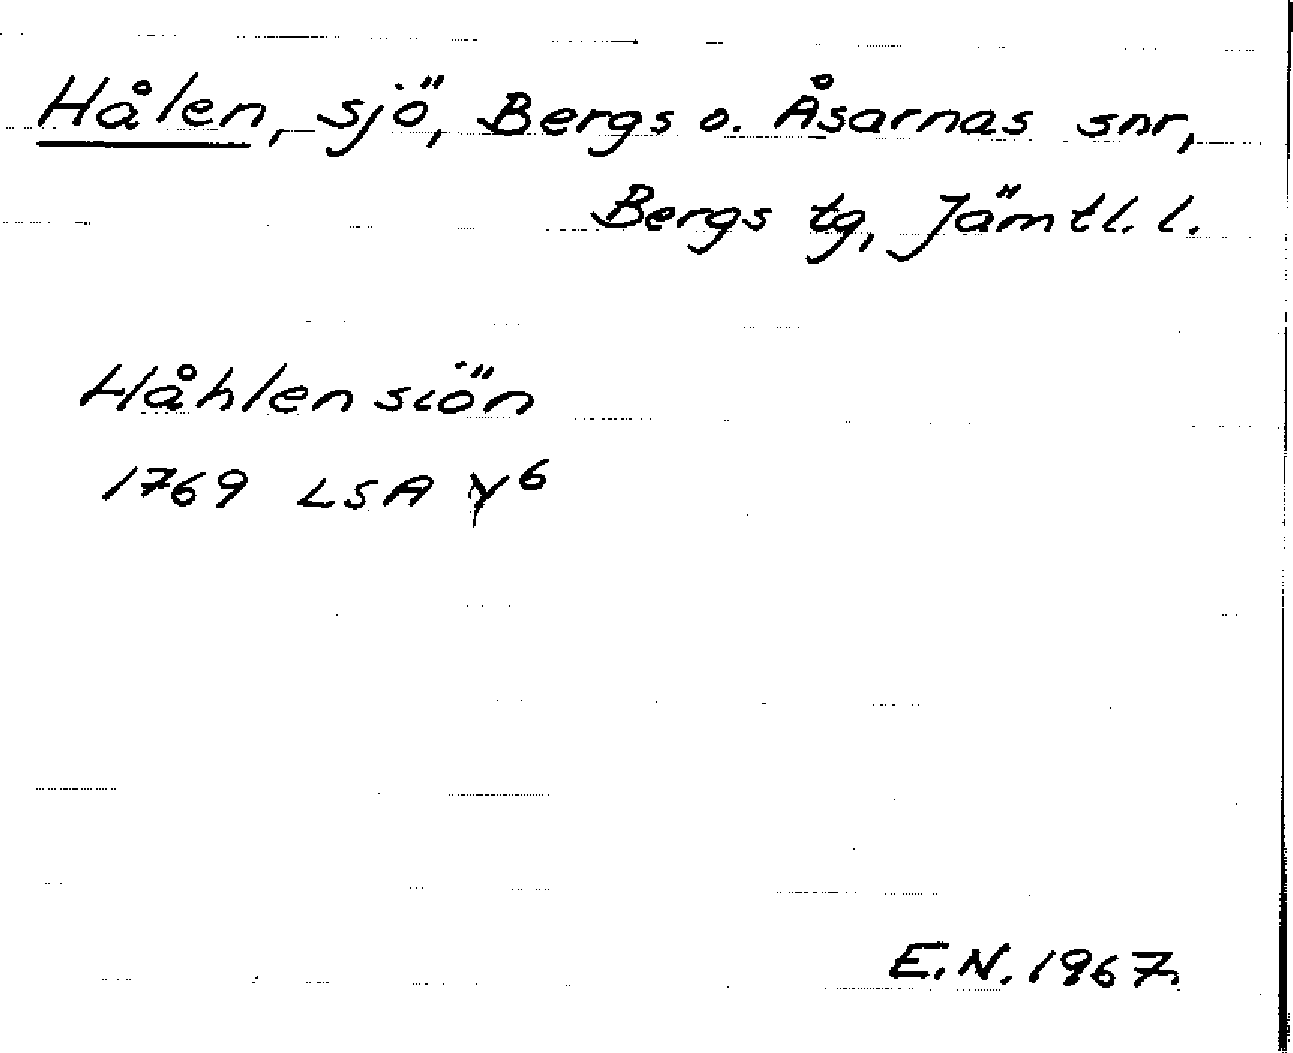 Hålen, sjö, Bergs o. Åsarnas snr,
Bergs tg, Jämtl. l.
Håhlensiön
1769 LSA Y⁶
E.N. 1967.